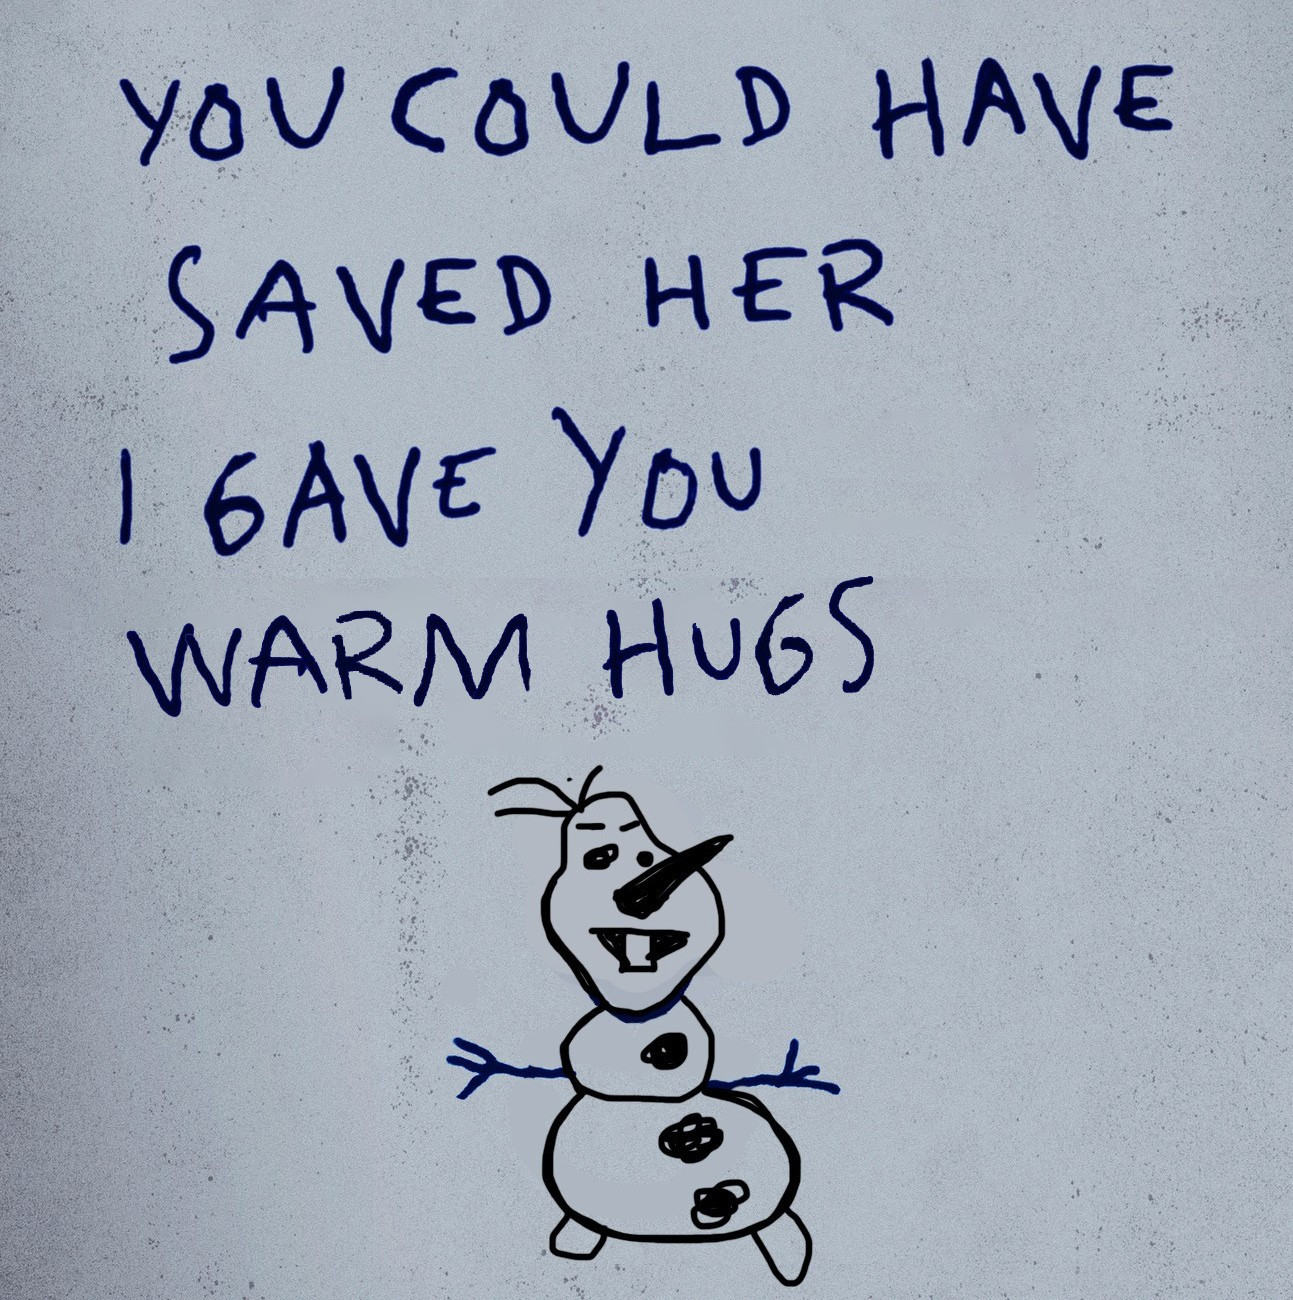 YOU COULD HAVE
SAVED HER
I GAVE YOU
WARM HUGS